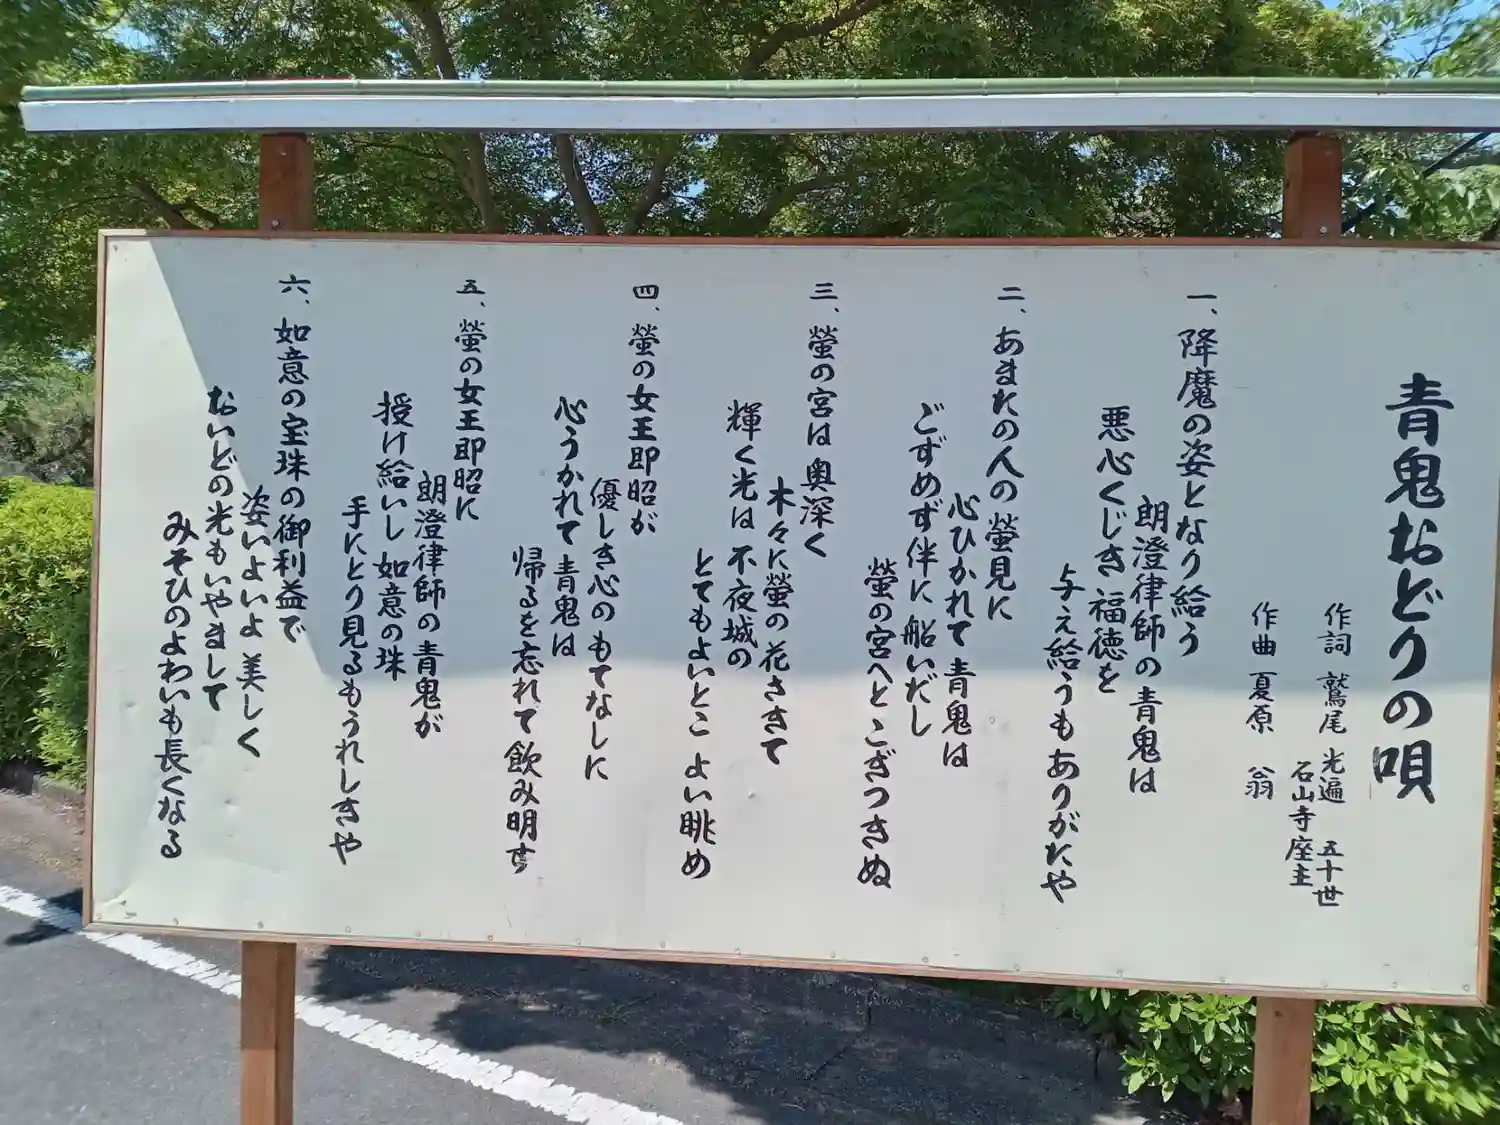 青鬼おどりの唄
作詞 鷲尾 光遍 五十世
石山寺座主
作曲 夏原 翁
一、降魔の姿となり給う
朗澄律師の青鬼は
悪心くじき福徳を
与え給うもありがたや
二、あまたの人の螢見に
心ひかれて青鬼は
ごずめず伴に船いだし
螢の宮へとこぎつきぬ
三、螢の宮は奥深く
木々に螢の花さきて
輝く光は不夜城の
とてもよいとこ よい眺め
四、螢の女王即昭が
優しき心のもてなしに
心うかれて青鬼は
帰るを忘れて飲み明す
五、螢の女王即昭に
朗澄律師の青鬼が
授け給いし如意の珠
手にとり見るもうれしきや
六、如意の宝珠の御利益で
姿いよいよ美しく
おいどの光もいやまして
みそひのよわいも長くなる